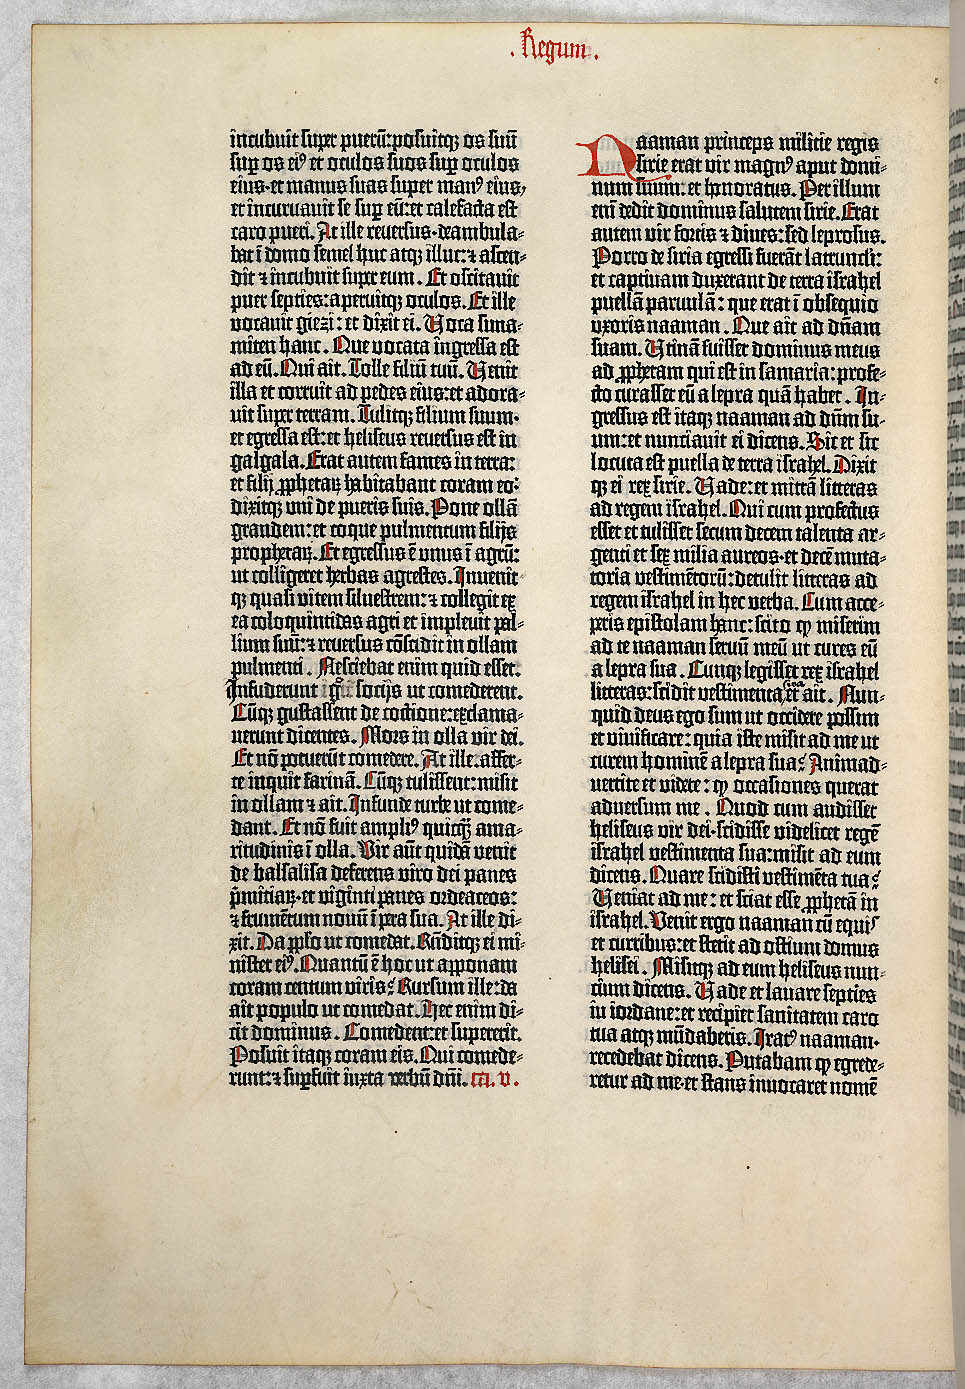 . Regum .
incubuit super puerū: posuitqꝫ os suū
sup̲ os ei⁹ et oculos suos sup̲ oculos
eius· et manus suas super man⁹ eius,
et incuruauit se sup̲ eū: et calefacta est
caro pueri. At ille reuersus· deambula-
bat ī domo semel huc atqꝫ illuc: ⁊ ascen-
dit ⁊ incubuit super eum. Et oscitauit
puer septies: aperuitqꝫ oculos. Et ille
vocauit giezi: et dixit ei. Uoca suna-
miten hanc. Que vocata ingressa est
ad eū. Qui ait. Tolle filiū tuū. Uenit
illa et corruit ad pedes eius: et adora-
uit super terram. Tulitqꝫ filium suum·
et egressa est: et heliseus reuersus est in
galgala. Erat autem fames in terra:
et filij ꝓphetaꝝ habitabant coram eo:
dixitqꝫ vni de pueris suis. Pone ollā
grandem: et coque pulmentum filijs
prophetaꝝ. Et egressus ē vnus ī agrū:
ut colligeret herbas agrestes. Inuenit-
qꝫ quasi vitem siluestrem: ⁊ collegit ex
ea coloquintidas agri et impleuit pal-
lium suū: ⁊ reuersus cōscidit in ollam
pulmenti. Nesciebat enim quid esset.
Infuderunt socijs ut comederent.
Cūqꝫ gustassent de coctione: exclama-
uerunt dicentes. Mors in olla vir dei.
Et nō potuerūt comedere. At ille. affer-
te inquit farinā. Cūqꝫ tulissent: misit
in ollam ⁊ ait. Infunde turbe ut come-
dant. Et nō fuit ampli⁹ quicꝗ̄ ama-
ritudinis ī olla. Vir aūt quidā venit
de balsalisa deferens viro dei panes
p̄mitiaꝝ· et viginti panes ordeaceos:
⁊ frumētum nouū ī pera sua. At ille di-
xit. Da ꝓꝓlo ut comedat. Rn̄ditqꝫ ei mi-
nister ei⁹. Quantū ē hoc ut apponam
coram centum viris? Rursum ille: da
ait populo ut comedat. Hec enim di-
cit dominus. Comedent: et supererit.
Posuit itaqꝫ coram eis. Qui comede-
runt: ⁊ sup̲fuit iuxta verbū dn̄i. ca. v.
Naaman princeps milicie regis
sirie erat vir magn⁹ aput domi-
num suum: et honoratus. Per illum
eni dedit dominus salutem sirie. Erat
autem vir fortis ⁊ diues: sed leprosus.
Porro de siria egressi fuerāt latrunculi:
et captiuam duxerant de terra israhel
puellā paruulā: que erat ī obsequio
vxoris naaman. Que ait ad dn̄am
suam. Utinā fuisset dominus meus
ad ꝓphetam qui est in samaria: profe-
cto curasset eū a lepra quā habet. In-
gressus est itaqꝫ naaman ad dn̄m su-
um: et nunciauit ei dicens. Sic et sic
locuta est puella de terra israhel. Dixit
qꝫ ei rex sirie. Uade: et mittā litteras
ad regem israhel. Qui cum profectus
esset et tulisset secum decem talenta ar-
genti et sex milia aureos· et decē muta-
toria vestimētorū: detulit litteras ad
regem israhel in hec verba. Cum acce-
peris epistolam hanc: scito ꝙ miserim
ad te naaman seruū meū ut cures eū
a lepra sua. Cunqꝫ legisset rex israhel
litteras: scidit vestimenta sua et ait. Nun-
quid deus ego sum ut occidere possim
et viuificare: quia iste misit ad me ut
curem hominē a lepra sua? Animad-
vertite et videte: ꝙ occasiones querat
aduersum me. Quod cum audisset
heliseus vir dei· scidisse videlicet regē
israhel vestimenta sua: misit ad eum
dicens. Quare scidisti vestimēta tua?
Ueniat ad me: et sciat esse ꝓphetā in
israhel. Venit ergo naaman cū equis
et curribus: et stetit ad ostium domus
helisei. Misitqꝫ ad eum heliseus nun-
cium dicens. Uade et lauare septies
in iordane: et recipiet sanitatem caro
tua atqꝫ mūdaberis. Irat⁹ naaman·
recedebat dicens. Putabam ꝙ egrede-
retur ad me· et stans inuocaret nomē